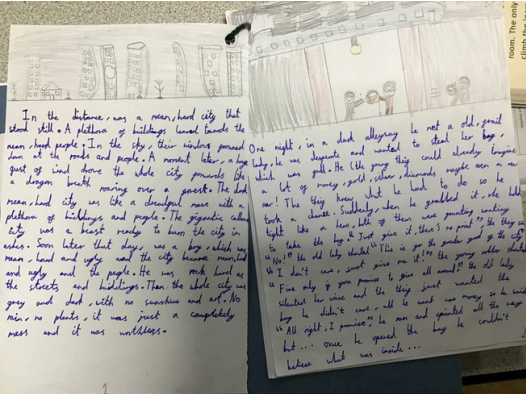 In the distance, was a mean, hard city that
stood still. A plethora of buildings leaned towards the
mean, hard people. In the sky, their windows
down at the roads and people. A moment later, a huge
gust of wind drove the whole city powerful like
a dragon breath roaring over a forest. The dark
mean, hard city was like a dreadful maze with a
plethora of buildings and people. The gigantic
city was a beast ready to burn the city in
ashes. Soon later that day, was a boy, which was
mean, hard and ugly and the city became mean, hard
and ugly and the people. He was rock hard as
the streets and buildings. Then the whole city was
grey and dark, with no sunshine and art. No
rain, no plants, it was just a completely
mess and it was worthless.
1
One night, in a dark alleyway he met a old, frail
lady, he was desperate and wanted to steal her bag,
which was gold. He (the young thief) could already imagine
a lot of money, gold, silver, diamonds maybe even a new
car! The thief knew what he had to do so he
took a chance. Suddenly, when he grabbed it, she held
tight like a hero, both of them were
to take the bag. "Just give it, there's no point", the thief
"No!" the old lady shouted "This is for the greater good of the
"I don't care, just give me it!" the young robber shouted
"Fine only if you promise to give all around" the old lady
silented her voice and the thief just wanted the
bag he didn't care, all he want was money so he said
"All right, I promise", he ran and sprinted all the way
but... once he opened the bag he couldn't
believe what was inside...
room. The only
climb the